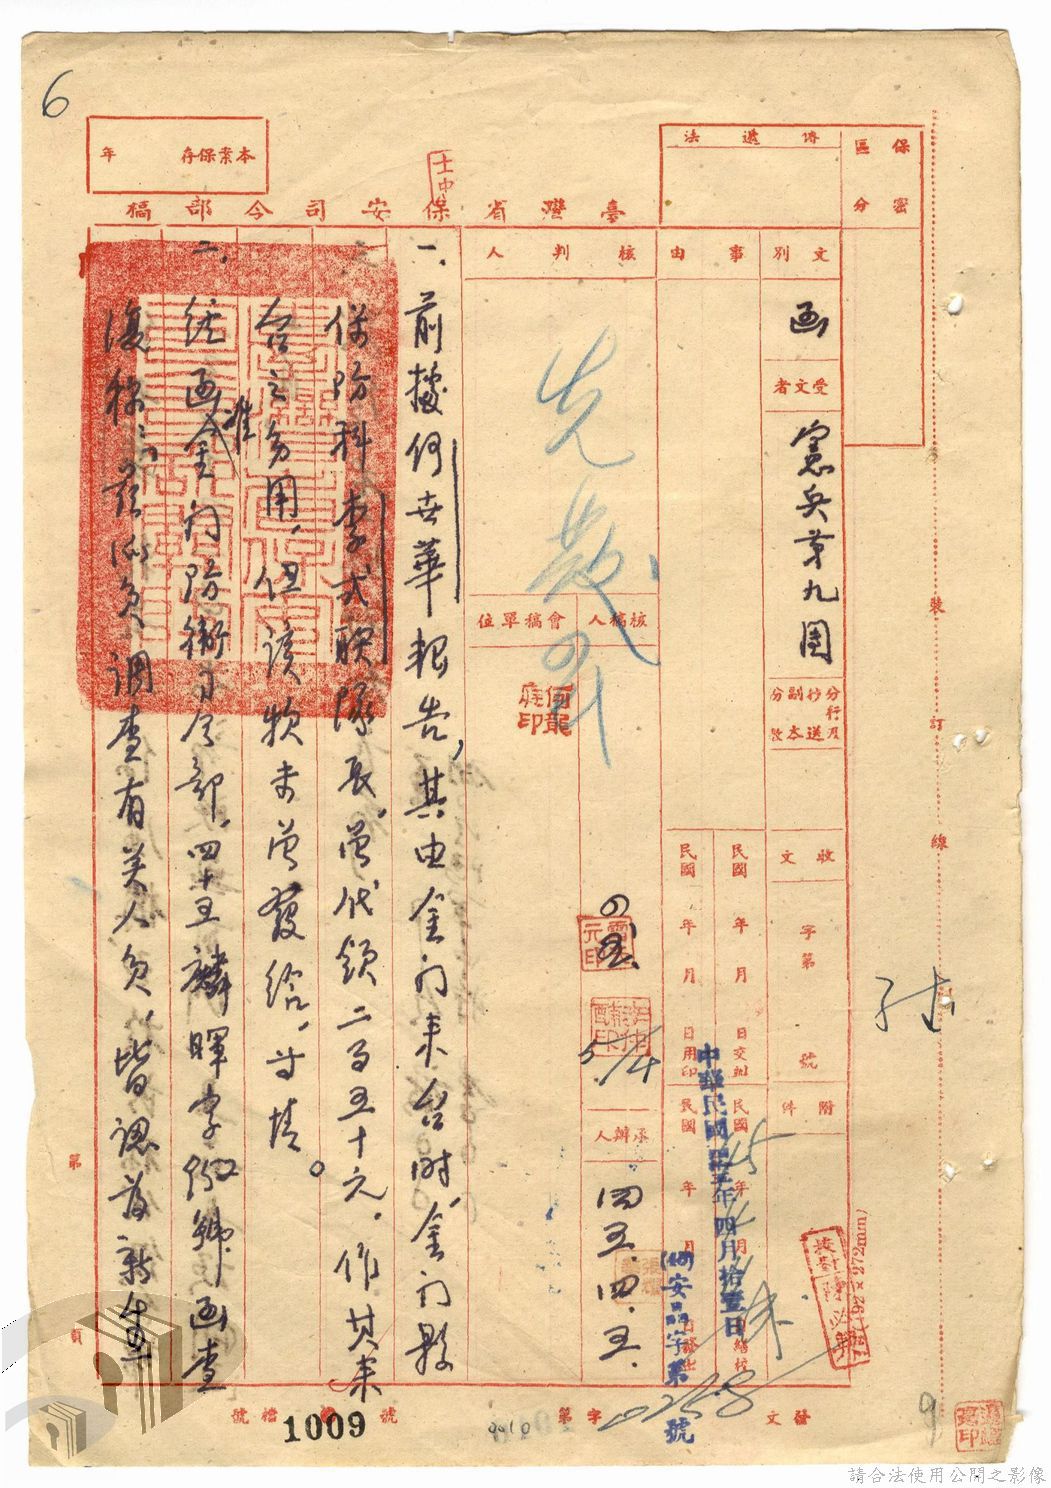 6
本案保存 年
士中
傳遞法
保密
區分
臺灣省保安司令部稿
文別
函
受文者
憲兵第九團
分行及抄送副本
收文
字第 號
附件
事由
民國 年 月 日交辦
民國 年 月 日用印
核判人
先發
核稿人
會稿單位
何龍 印
5/4
承辦人
四五.四.五.
中華民國 年四月拾壹日
安品字第 0258 號
一、前據何世華報告,其由金門來台時,金門縣
保防科李式聯隊長,曾代領二百五十元,作其來
台之費用,但該款未曾發給,等情。
二、經函准金門防衛司令部,四十五麟暉字 號函查
復稱:茲派員調查有关人員,皆認為新生
裝
訂
線
發文
字第
號
檔號
1009
第 頁
192×272mm
9
請合法使用公開之影像